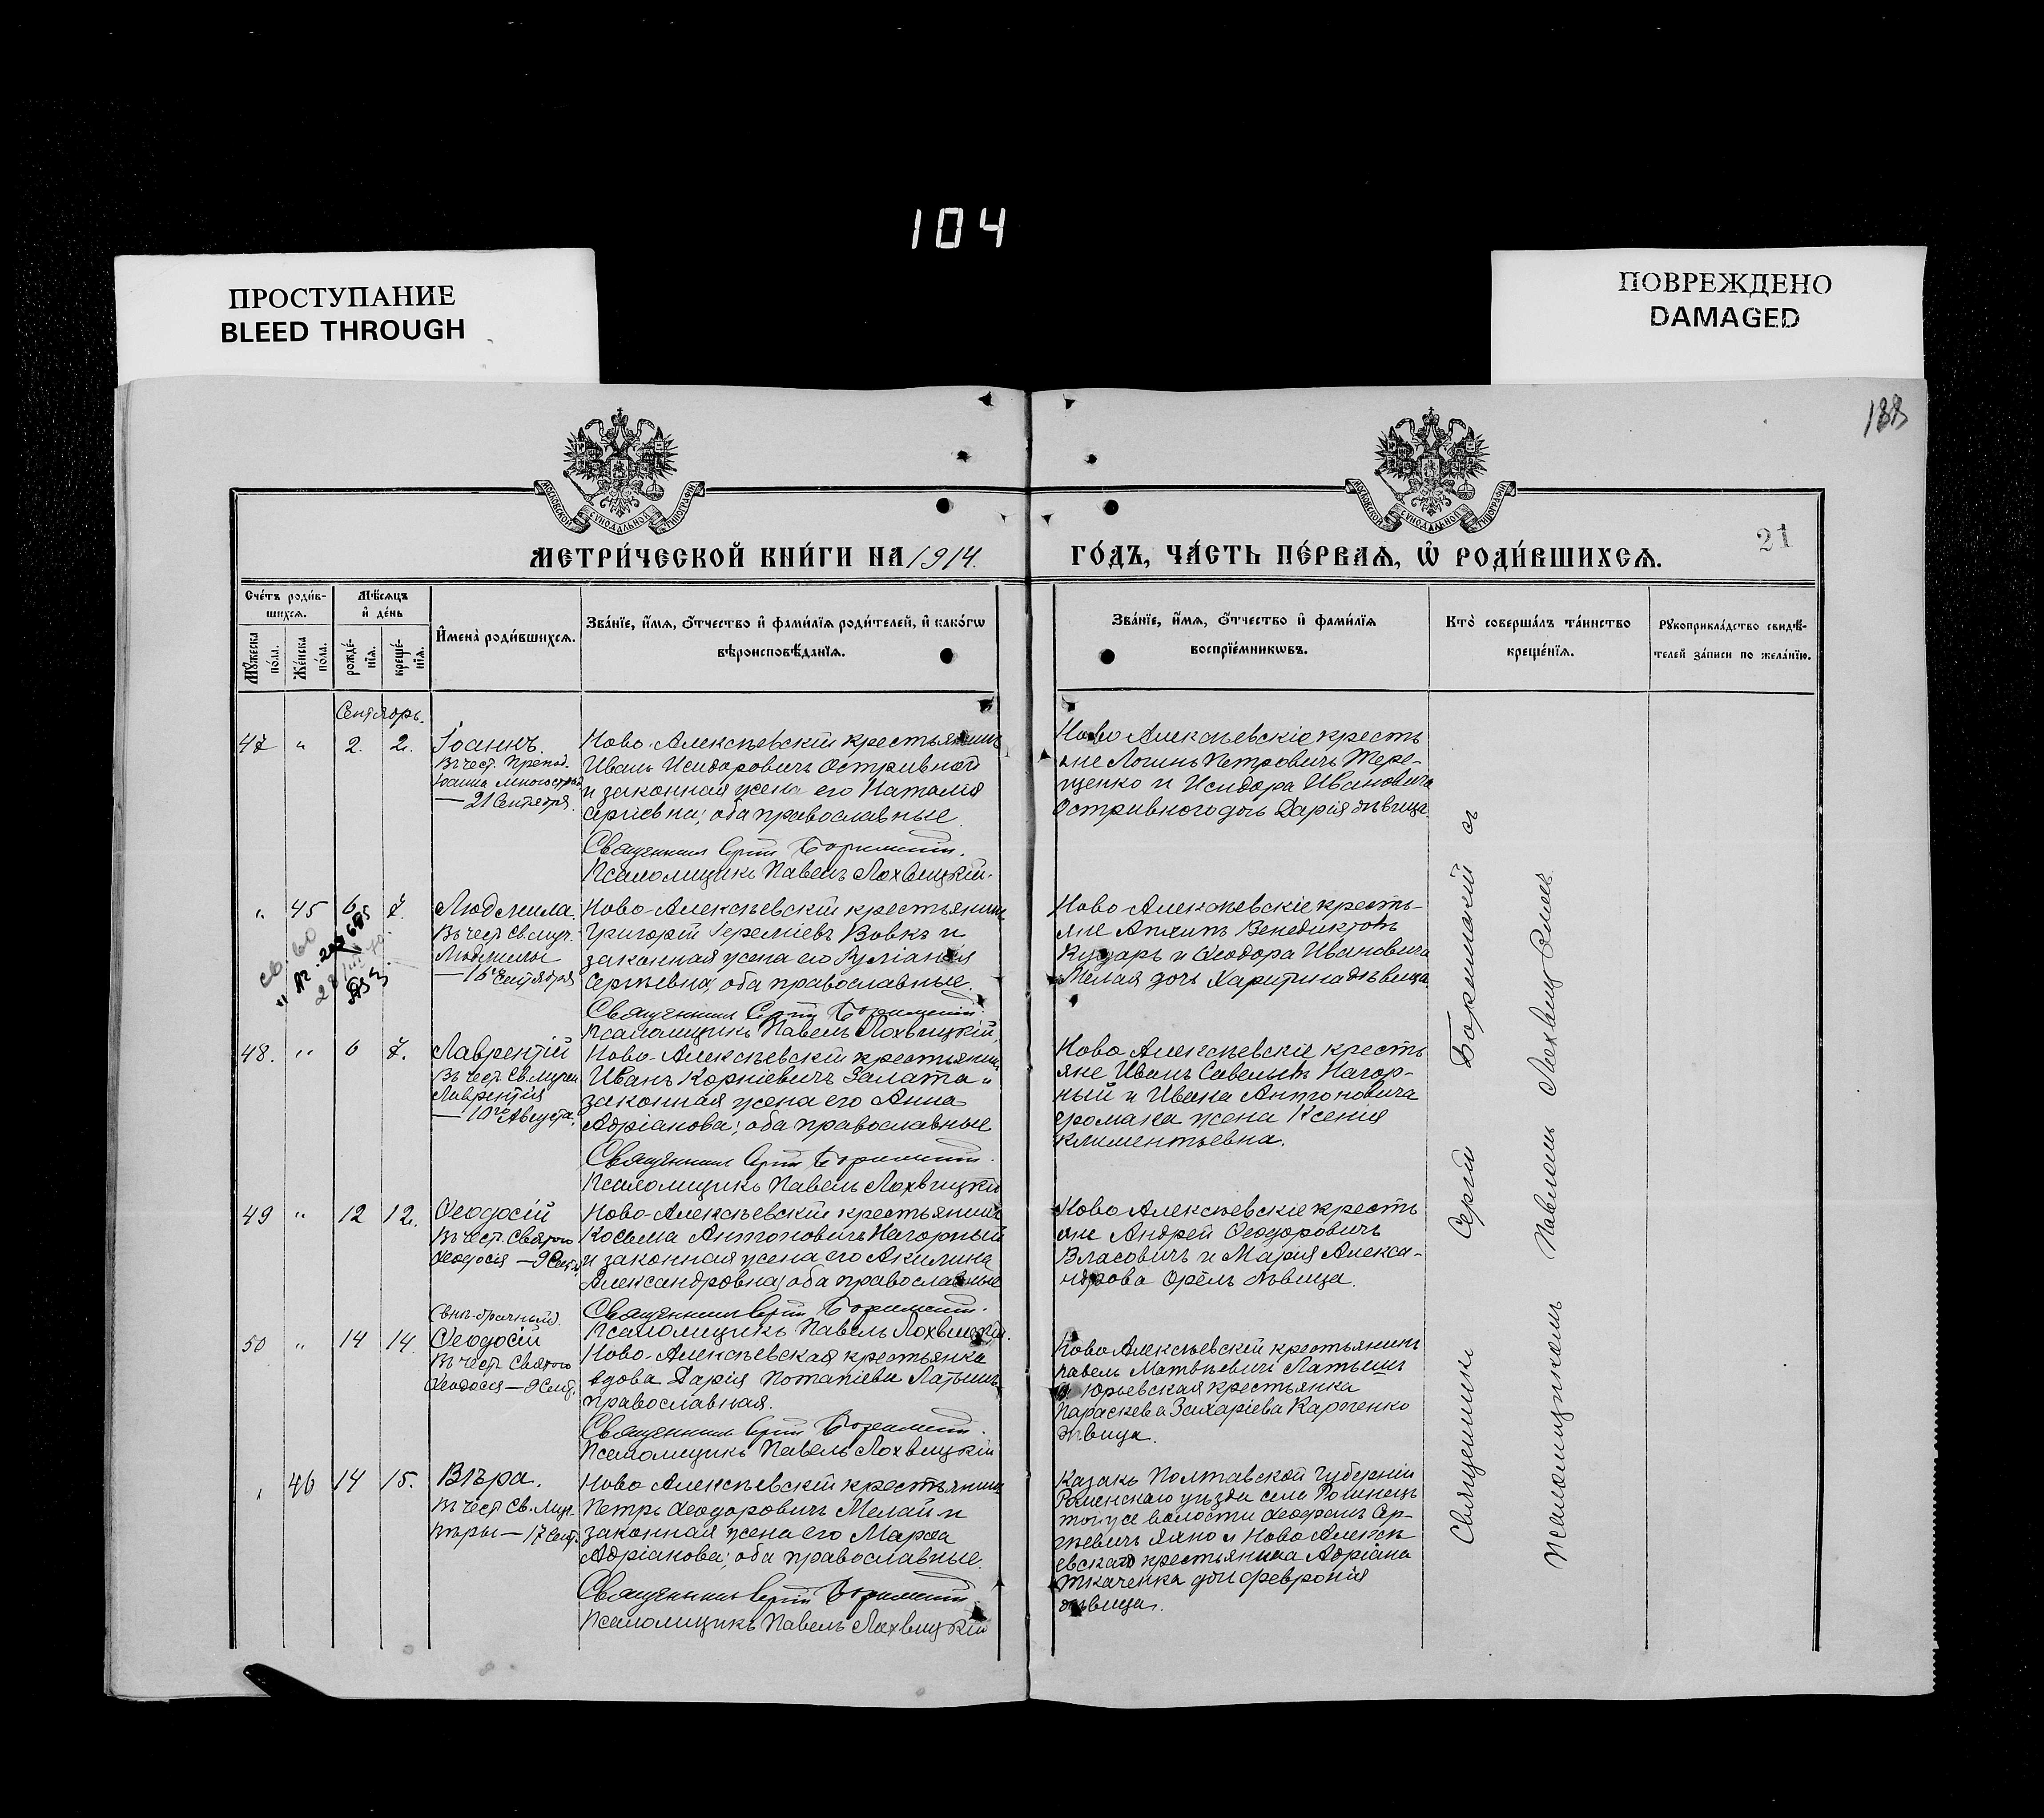 104
ПРОСТУПАНИЕ
BLEED THROUGH
ПОВРЕЖДЕНО
DAMAGED
МОСКОВСКОЙ СѴНОДАЛЬНОЙ ТИПОГРАФІИ
МОСКОВСКОЙ СѴНОДАЛЬНОЙ ТИПОГРАФІИ
21
МЕТРИ́ЧЕСКОЙ КНИ́ГИ НА 1914.
ГО́ДЪ, ЧА́СТЬ ПЕ́РВАѦ, Ѽ РОДИ́ВШИХСѦ.
Сче́тъ роди́в-
шихсѧ.
Мꙋ́жеска
по́ла.
Же́нска
по́ла.
Мѣ́сѧцъ
и҆ де́нь
рожде́-
нїѧ.
креще́-
нїѧ.
И҆мена̀ роди́вшихсѧ.
Зва́нїе, и҆́мѧ, о҆́тчество и҆ фами́лїѧ роди́телей, и҆ како́гѡ
вѣроисповѣ́данїѧ.
Зва́нїе, и҆́мѧ, о҆́тчество и҆ фами́лїѧ
воспрїе́мникѡвъ.
Кто̀ соверша́лъ та́инство
креще́нїѧ.
Рꙋкоприкла́дство свидѣ́-
телей за́писи по жела́нїю.
Сентябрь.
47 " 2. 2.
Іоаннъ.
Въ чест. Препод.
Іоанна Многострад.
— 21 Сентября.
Ново-Алексѣевскій крестьянинъ
Иванъ Исидоровичъ Остривной
и законная жена его Наталія
Сергіевна; оба православные.
Священникъ Сергій
Псаломщикъ Павелъ Лохвицкій.
Ново Алексѣевскіе кресть
яне Логинъ Петровичъ Тере-
щенко и Исидора Ивановича
Остривного дочь Дарія дѣвица.
" 45 6 7.
Людмила.
Въ чест. Св. муч.
Людмилы
— 16го Сентября
Ново-Алексѣевскій крестьянинъ
Григорій Іереміевъ Вовкъ и
законная жена его Іуліанія
Сергѣевна, оба православные.
Священникъ Сергій
Псаломщикъ Павелъ Лохвицкій.
Ново-Алексѣевскіе кресть-
яне Архипъ Венедиктовъ
и Ѳеодора Ивановича
Мелая дочь Харитина дѣвица
48. " 6 7.
Лаврентій
Въ чест. Св. мучен
Лаврентія
— 10го Августа.
Ново-Алексѣевскій крестьянинъ
Иванъ Корніевичъ Залата и
законная жена его Анна
Адріанова; оба православные
Священникъ Сергій
Псаломщикъ Павелъ Лохвицкій
Ново Алексѣевскіе кресть
яне Иванъ Савельевъ Нагор-
ный и Ивана Антоновича
Громака жена Ксенія
Климентьевна.
49 " 12 12.
Ѳеодосій
Въ чест. Святого
Ѳеодосія — 9 Сент.
Ново-Алексѣевскій крестьянинъ
Косьма Антоновичъ Нагорный
и законная жена его Акилина
Александровна; оба православные
Священникъ Сергій
Псаломщикъ Павелъ Лохвицкій.
Ново Алексѣевскіе кресть
яне Андрей Ѳеодоровичъ
Власовичъ и Марія Алекса-
ндрова Орѣлъ дѣвица.
(внѣ-брачный)
50 " 14 14
Ѳеодосій
Въ чест. Святого
Ѳеодосія — 9 Сент.
Ново-Алексѣевская крестьянка
вдова Дарія Потапіева Латышъ
православная.
Священникъ Сергій
Псаломщикъ Павелъ Лохвицкій
Ново Алексѣевскій крестьянинъ
Павелъ Матвѣевичъ Латышъ
и Юрьевская крестьянка
Параскева Захаріева Карпенко
дѣвица.
" 46 14 15.
Вѣра.
Въ чест. Св. Муч.
Вѣры — 17 Сент.
Ново Алексѣевскій крестьянинъ
Петръ Ѳеодоровичъ Мелай и
законная жена его Марѳа
Адріанова; оба православные
Священникъ Сергій
Псаломщикъ Павелъ Лохвицкій
Казакъ Полтавской Губерніи
Роменскаго уѣзда села
той же волости Сер-
гѣевичъ Яхно и Ново Алексѣ
евскаго крестьянина Адріана
Ткаченка дочь Февронія
дѣвица.
Священникъ Сергій съ
Псаломщикомъ Павломъ